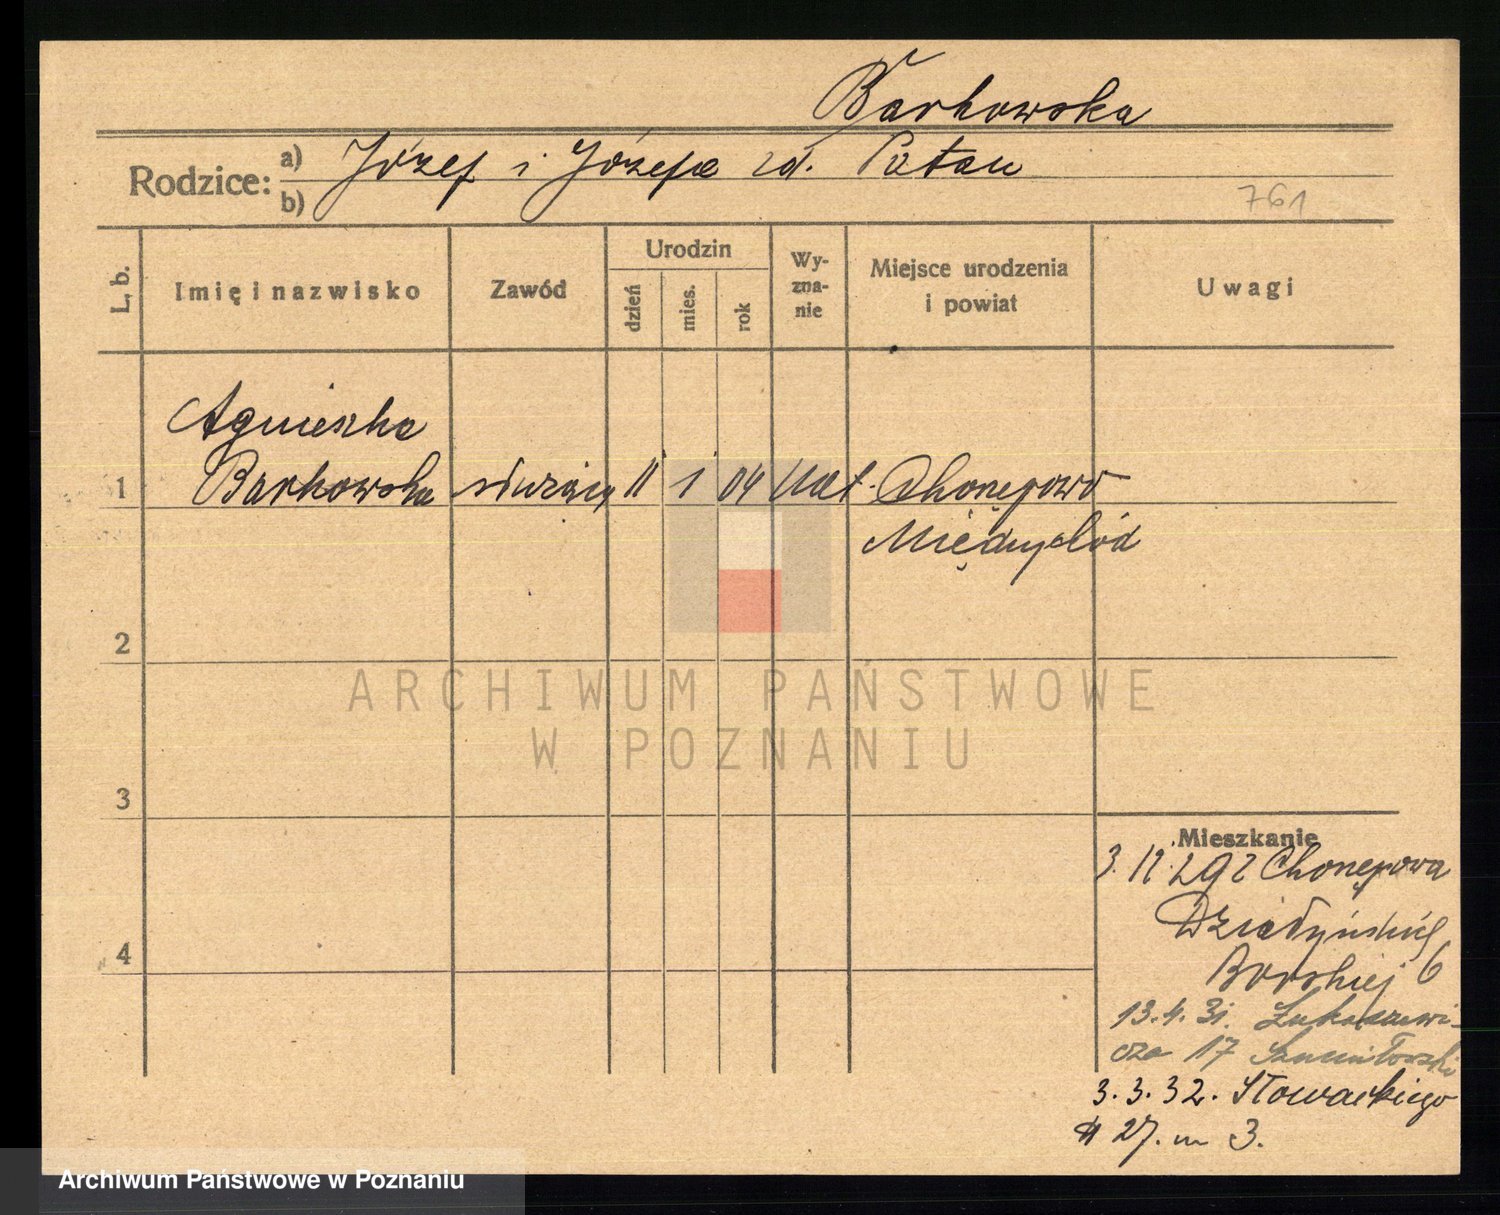 Barkowska
Rodzice:
a) Józef i Józefa zd. Patan
b)
761
L. b.
Imię i nazwisko
Zawód
Urodzin
dzień
mies.
rok
Wy-
zna-
nie
Miejsce urodzenia
i powiat
Uwagi
Agnieszka
1 Barkowska służąca 11 1 04 kat. Chorzępowo
Międzychód
2
3
4
ARCHIWUM PAŃSTWOWE
W POZNANIU
Mieszkanie
3. 12. 292 Chorzępowa
Działyńskiej
Borskiej 6
13.4.31. Łukaszewi-
cza 17
3.3.32. Słowackiego
27. m 3.
Archiwum Państwowe w Poznaniu